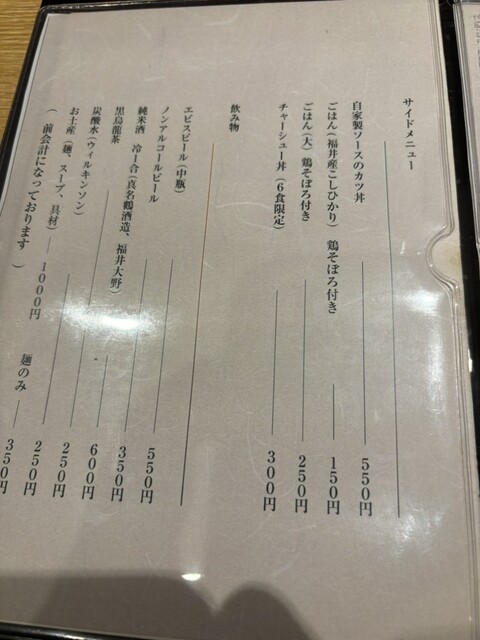 サイドメニュー
自家製ソースのカツ丼 550円
ごはん(福井産こしひかり) 鶏そぼろ付き 150円
ごはん(大) 鶏そぼろ付き 250円
チャーシュー丼(6食限定) 300円
飲み物
エビスビール(中瓶) 550円
ノンアルコールビール 350円
純米酒 冷一合(真名鶴酒造、福井大野) 600円
黒烏龍茶 250円
炭酸水(ウィルキンソン) 250円
お土産(麺、スープ、具材) 1000円 麺のみ 350円
(前会計になっております)